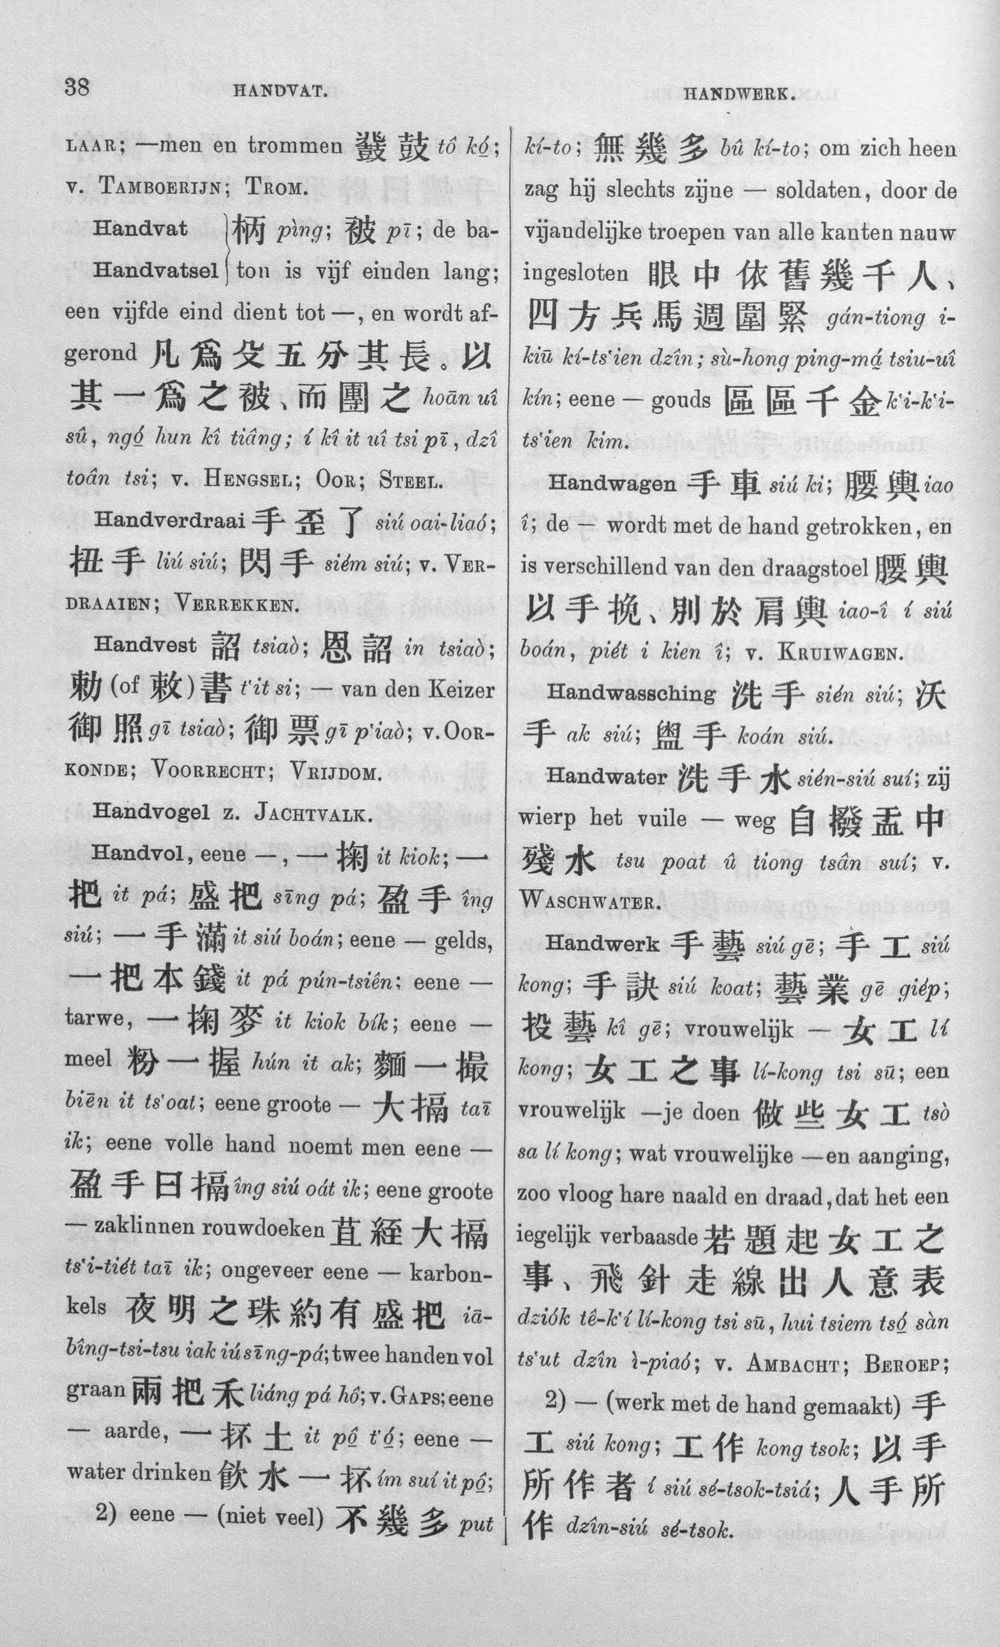 38
HANDVAT.
HANDWERK.
LAAR; —men en trommen 鼗鼓 tô kó̤;
v. TAMBOERIJN; TROM.
Handvat } 柄 pìng; 被 pī; de ba-
Handvatsel } ton is vijf einden lang;
een vijfde eind dient tot —, en wordt af-
gerond 凡爲殳五分其長。以
其一爲之被、而圍之 hoān uî
sû, ngó̤ hun kî tiâng; í kî it uî tsi pī, dzî
toân tsi; v. HENGSEL; OOR; STEEL.
Handverdraai 手歪了 siú oai-liaó;
扭手 liú siú; 閃手 siém siú; v. VER-
DRAAIEN; VERREKKEN.
Handvest 詔 tsiaò; 恩詔 in tsiaò;
勅 (of 敕) 書 t‘it si; — van den Keizer
御照 gī tsiaò; 御票 gī p‘iaò; v. OOR-
KONDE; VOORRECHT; VRIJDOM.
Handvogel z. JACHTVALK.
Handvol, eene —, 一掬 it kiok; 一
把 it pá; 盛把 sīng pá; 盈手 îng
siú; 一手滿 it siú boán; eene — gelds,
一把本錢 it pá pún-tsiên; eene —
tarwe, 一掬麥 it kiok bík; eene —
meel 粉一握 hún it ak; 麵一撮
biēn it ts‘oat; eene groote — 大搹 taī
ik; eene volle hand noemt men eene —
盈手曰搹 îng siú oát ik; eene groote
— zaklinnen rouwdoeken 苴絰大搹
ts‘i-tiét taī ik; ongeveer eene — karbon-
kels 夜明之珠約有盛把 iā-
bîng-tsi-tsu iak iú sīng-pá; twee handen vol
graan 兩把禾 liáng pá hô; v. GAPS; eene
— aarde, 一抔土 it pô̤ t‘ó̤; eene —
water drinken 飲水一抔 ím suí it pô̤;
2) eene — (niet veel) 不幾多 put
kí-to; 無幾多 bû kí-to; om zich heen
zag hij slechts zijne — soldaten, door de
vijandelijke troepen van alle kanten nauw
ingesloten 眼中依舊幾千人、
四方兵馬週圍緊 gán-tiong i-
kiū kí-ts‘ien dzîn; sù-hong ping-má̤ tsiu-uî
kín; eene — gouds 區區千金 k‘i-k‘i-
ts‘ien kim.
Handwagen 手車 siú ki; 腰輿 iao
î; de — wordt met de hand getrokken, en
is verschillend van den draagstoel 腰輿
以手挽、別於肩輿 iao-î í siú
boán, piét i kien î; v. KRUIWAGEN.
Handwassching 洗手 sién siú; 沃
手 ak siú; 盥手 koán siú.
Handwater 洗手水 sién-siú suí; zij
wierp het vuile — weg 自撥盂中
殘水 tsu poat û tiong tsân suí; v.
WASCHWATER.
Handwerk 手藝 siú gē; 手工 siú
kong; 手訣 siú koat; 藝業 gē giép;
技藝 kî gē; vrouwelijk — 女工 lí
kong; 女工之事 lí-kong tsi sū; een
vrouwelijk —je doen 做些女工 tsò
sa lí kong; wat vrouwelijke —en aanging,
zoo vloog hare naald en draad, dat het een
iegelijk verbaasde 若題起女工之
事、飛針走線出人意表
dziók tê-k‘í lí-kong tsi sū, hui tsiem tsó̤ sàn
ts‘ut dzîn ì-piaó; v. AMBACHT; BEROEP;
2) — (werk met de hand gemaakt) 手
工 siú kong; 工作 kong tsok; 以手
所作者 í siú sé-tsok-tsiá; 人手所
作 dzîn-siú sé-tsok.